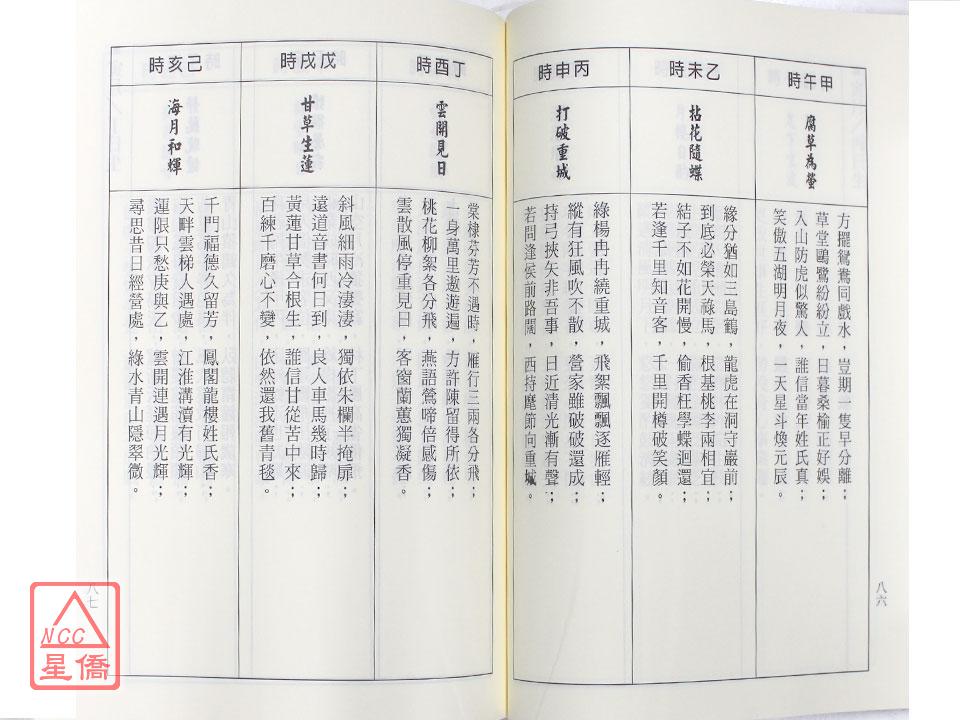 甲午時
腐草為螢
方擺鴛鴦同戲水，豈期一隻早分離；
草堂鷗鷺紛紛立，日暮桑榆正好娛；
入山防虎似驚人，誰信當年姓氏真；
笑傲五湖明月夜，一天星斗煥元辰。
乙未時
拈花隨蝶
緣分猶如三島鶴，龍虎在洞守巖前；
到底必榮天祿馬，根基桃李兩相宜；
結子不如花開慢，偷香枉學蝶迴還；
若逢千里知音客，千里開樽破笑顏。
丙申時
打破重城
綠楊冉冉繞重城，飛絮飄飄逐雁輕；
縱有狂風吹不散，營家雖破破還成；
持弓挾矢非吾事，日近清光漸有聲；
若問逢侯前路闊，西持麾節向重城。
八六
丁酉時
雲開見日
棠棣芬芳不遇時，雁行三兩各分飛；
一身萬里遨遊遍，方許陳留得所依；
桃花柳絮各分飛，燕語鶯啼倍感傷；
雲散風停重見日，客窗蘭蕙獨凝香。
戊戌時
甘草生蓮
斜風細雨冷淒淒，獨依朱欄半掩扉；
遠道音書何日到，良人車馬幾時歸；
黃蓮甘草合根生，誰信甘從苦中來；
百練千磨心不變，依然還我舊青毯。
己亥時
海月和輝
千門福德久留芳，鳳閣龍樓姓氏香；
天畔雲梯人遇處，江淮溝瀆有光輝；
運限只愁庚與乙，雲開連遇月光輝；
尋思昔日經營處，綠水青山隱翠微。
八七
NCC
星僑